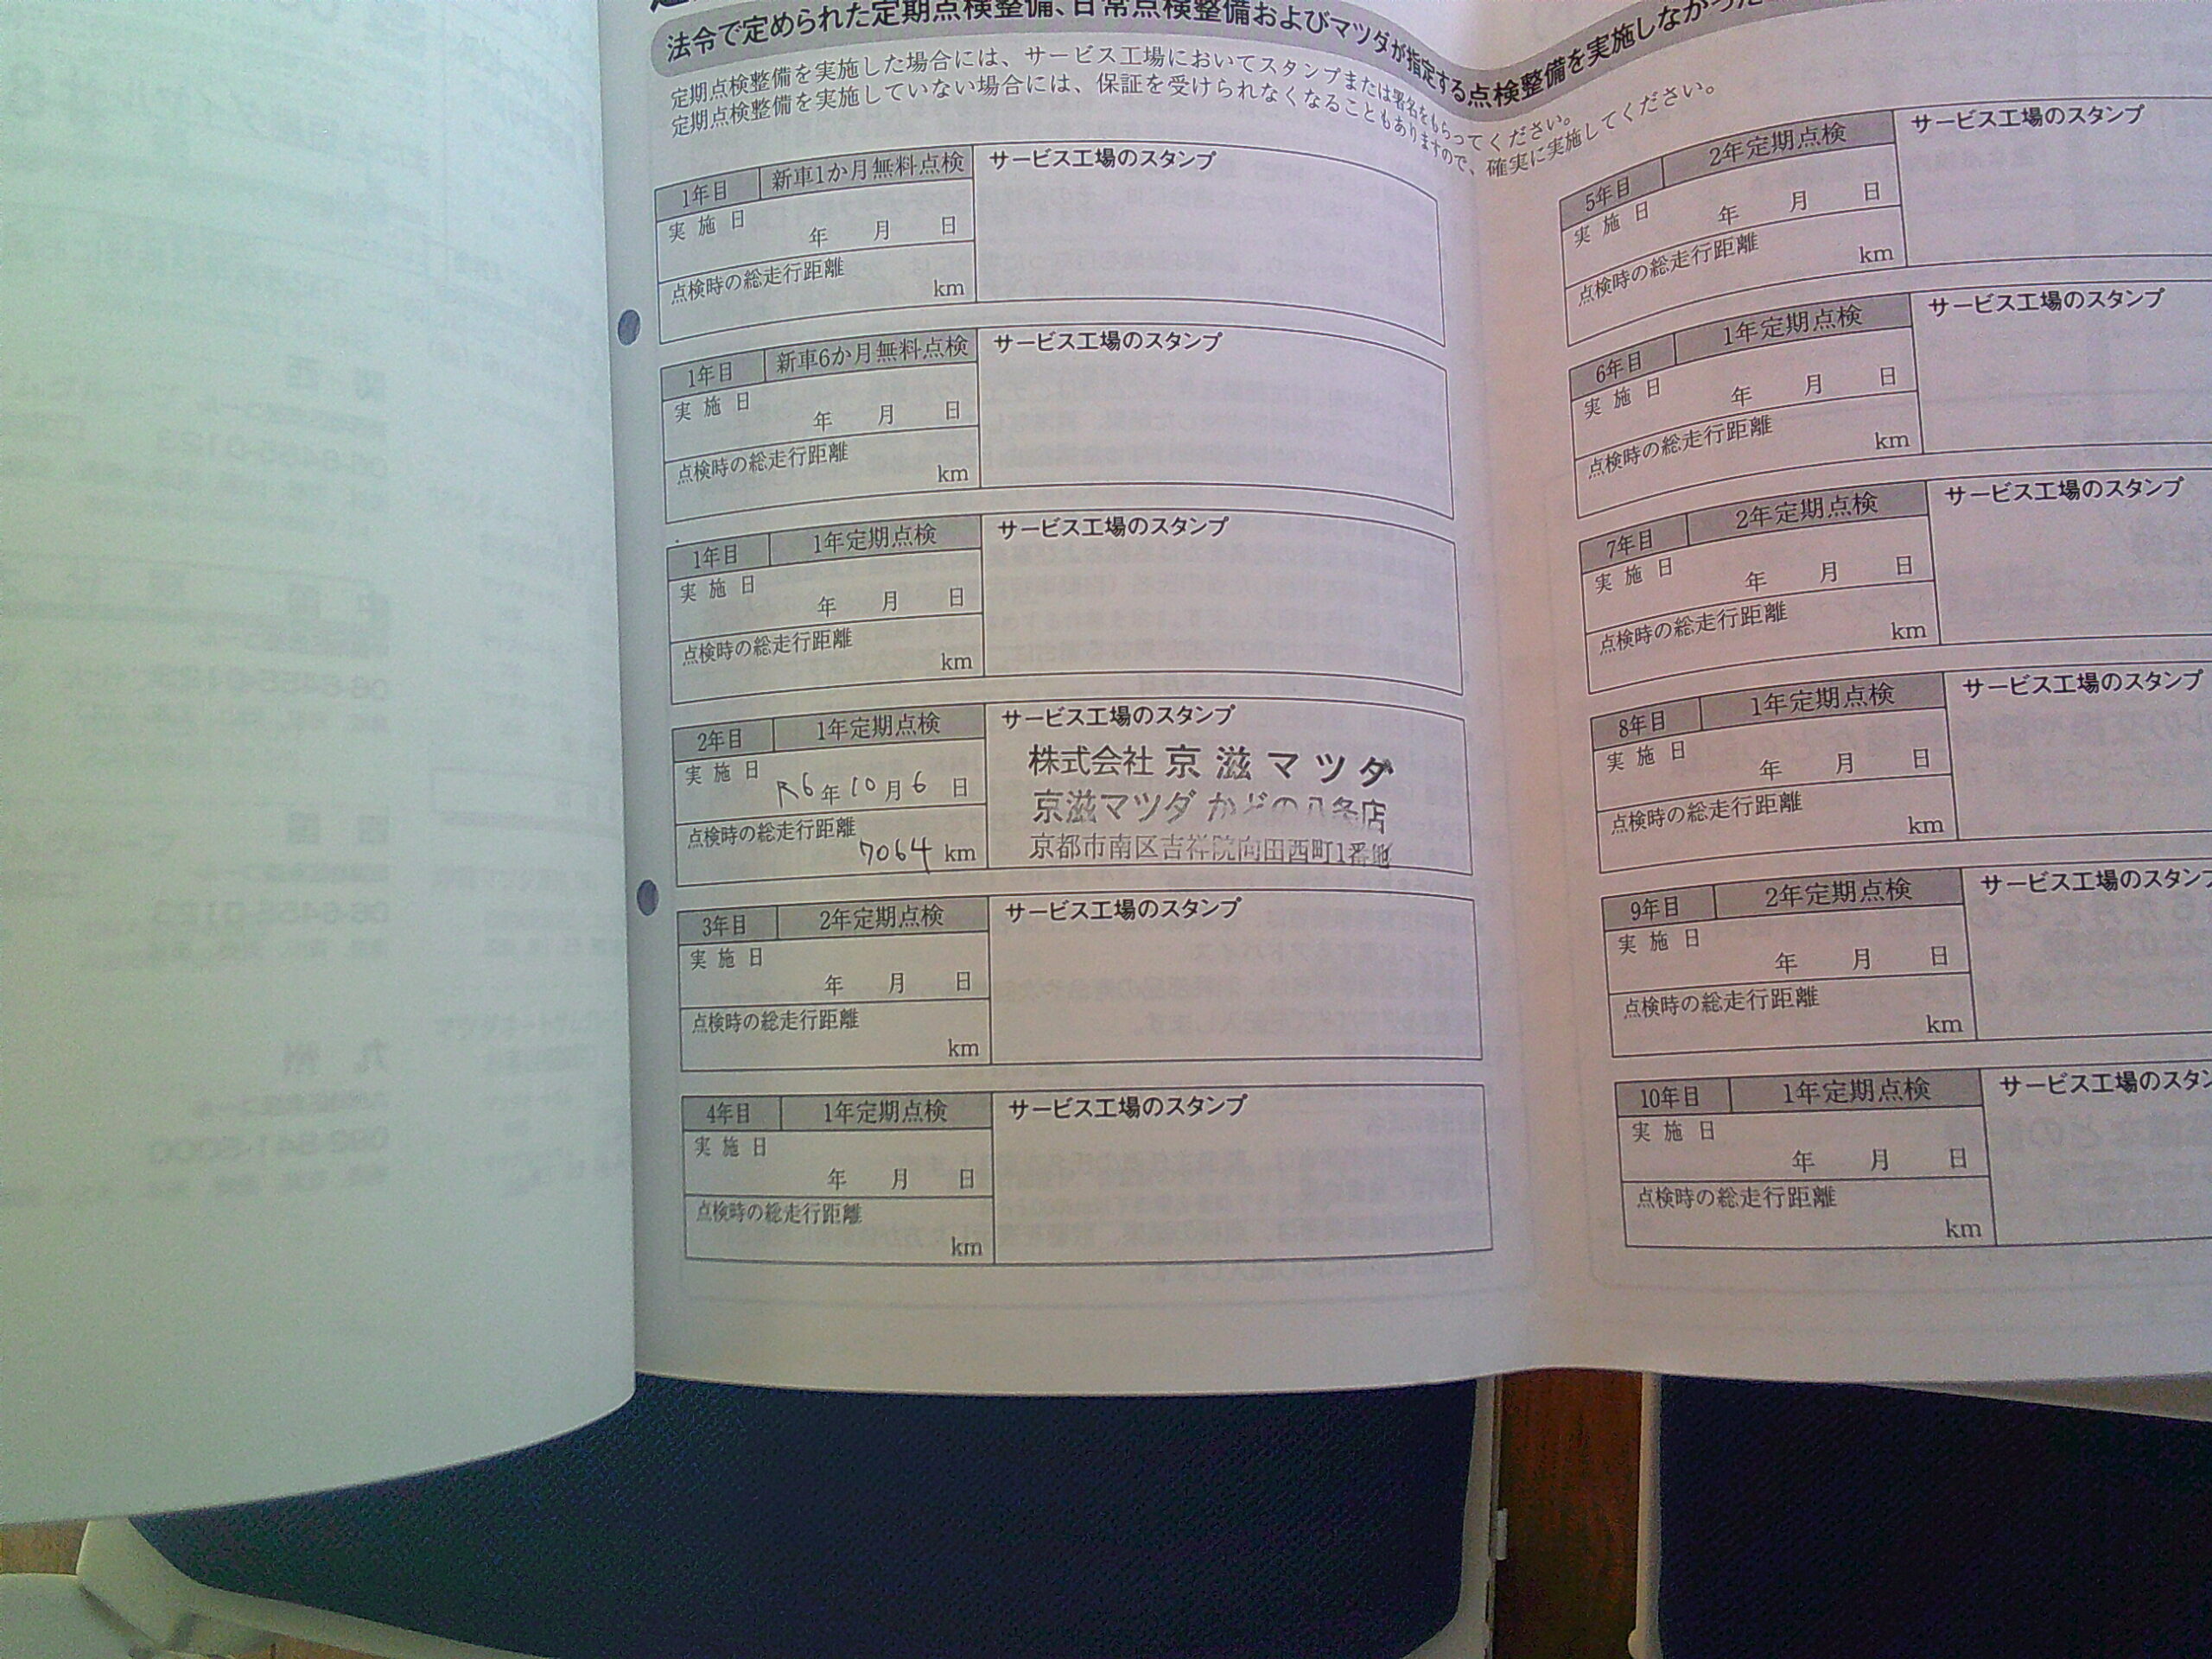 法令で定められた定期点検整備、日常点検整備およびマツダが指定する点検整備を実施しなかった
定期点検整備を実施した場合には、サービス工場においてスタンプまたは署名をもらってください。
定期点検整備を実施していない場合には、保証を受けられなくなることもありますので、確実に実施してください。
1年目 新車1か月無料点検 サービス工場のスタンプ
実施日
年 月 日
点検時の総走行距離
km
1年目 新車6か月無料点検 サービス工場のスタンプ
実施日
年 月 日
点検時の総走行距離
km
1年目 1年定期点検 サービス工場のスタンプ
実施日
年 月 日
点検時の総走行距離
km
2年目 1年定期点検 サービス工場のスタンプ
実施日
R6年10月6日
点検時の総走行距離
7064 km
株式会社 京滋マツダ
京滋マツダ かどの八条店
京都市南区吉祥院向田西町1番地
3年目 2年定期点検 サービス工場のスタンプ
実施日
年 月 日
点検時の総走行距離
km
4年目 1年定期点検 サービス工場のスタンプ
実施日
年 月 日
点検時の総走行距離
km
5年目 2年定期点検 サービス工場のスタンプ
実施日
年 月 日
点検時の総走行距離
km
6年目 1年定期点検 サービス工場のスタンプ
実施日
年 月 日
点検時の総走行距離
km
7年目 2年定期点検 サービス工場のスタンプ
実施日
年 月 日
点検時の総走行距離
km
8年目 1年定期点検 サービス工場のスタンプ
実施日
年 月 日
点検時の総走行距離
km
9年目 2年定期点検 サービス工場のスタンプ
実施日
年 月 日
点検時の総走行距離
km
10年目 1年定期点検 サービス工場のスタン
実施日
年 月 日
点検時の総走行距離
km